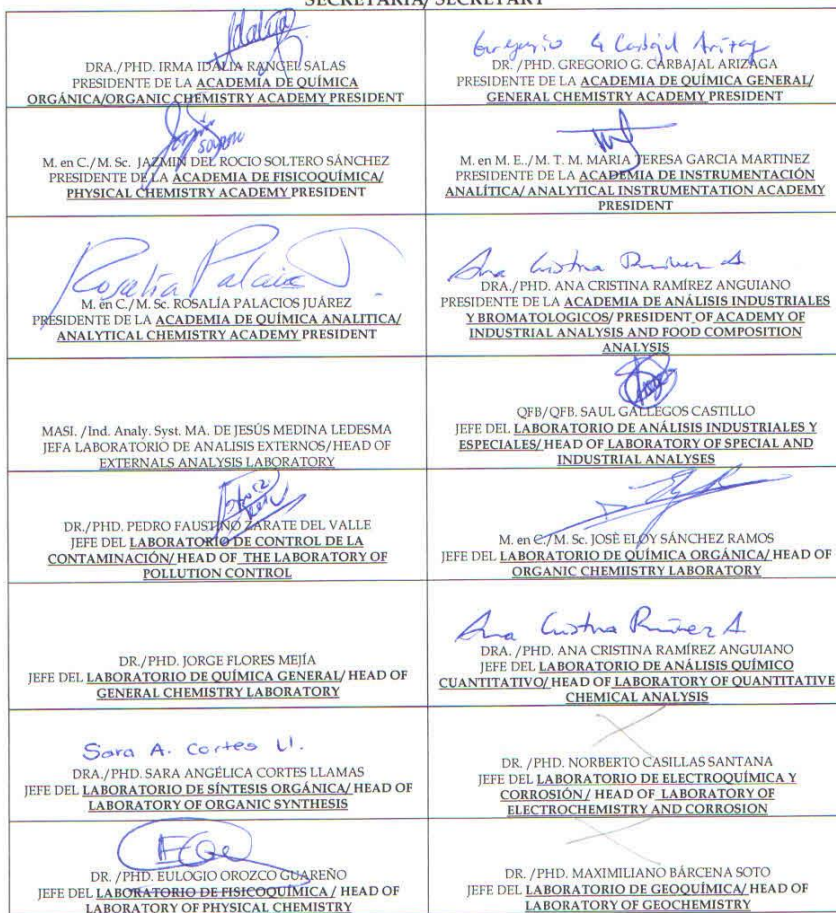 SECRETARIA/ SECRETARY
DRA./PHD. IRMA IDALIA RANGEL SALAS
PRESIDENTE DE LA ACADEMIA DE QUÍMICA
ORGÁNICA/ORGANIC CHEMISTRY ACADEMY PRESIDENT
Gregorio G Carbajal Arizag
DR. /PHD. GREGORIO G. CARBAJAL ARIZAGA
PRESIDENTE DE LA ACADEMIA DE QUÍMICA GENERAL/
GENERAL CHEMISTRY ACADEMY PRESIDENT
M. en C./M. Sc. JAZMIN DEL ROCIO SOLTERO SÁNCHEZ
PRESIDENTE DE LA ACADEMIA DE FISICOQUÍMICA/
PHYSICAL CHEMISTRY ACADEMY PRESIDENT
M. en M. E../M. T. M. MARIA TERESA GARCIA MARTINEZ
PRESIDENTE DE LA ACADEMIA DE INSTRUMENTACIÓN
ANALÍTICA/ ANALYTICAL INSTRUMENTATION ACADEMY
PRESIDENT
Rosalía Palacios J.
M. en C./M. Sc. ROSALÍA PALACIOS JUÁREZ
PRESIDENTE DE LA ACADEMIA DE QUÍMICA ANALITICA/
ANALYTICAL CHEMISTRY ACADEMY PRESIDENT
Ana Cristina Ramírez A
DRA./PHD. ANA CRISTINA RAMÍREZ ANGUIANO
PRESIDENTE DE LA ACADEMIA DE ANÁLISIS INDUSTRIALES
Y BROMATOLOGICOS/ PRESIDENT OF ACADEMY OF
INDUSTRIAL ANALYSIS AND FOOD COMPOSITION
ANALYSIS
MASI. /Ind. Analy. Syst. MA. DE JESÚS MEDINA LEDESMA
JEFA LABORATORIO DE ANALISIS EXTERNOS/HEAD OF
EXTERNALS ANALYSIS LABORATORY
QFB/QFB. SAUL GALLEGOS CASTILLO
JEFE DEL LABORATORIO DE ANÁLISIS INDUSTRIALES Y
ESPECIALES/ HEAD OF LABORATORY OF SPECIAL AND
INDUSTRIAL ANALYSES
DR./PHD. PEDRO FAUSTINO ZARATE DEL VALLE
JEFE DEL LABORATORIO DE CONTROL DE LA
CONTAMINACIÓN/ HEAD OF THE LABORATORY OF
POLLUTION CONTROL
M. en C./M. Sc. JOSÉ ELOY SÁNCHEZ RAMOS
JEFE DEL LABORATORIO DE QUÍMICA ORGÁNICA/ HEAD OF
ORGANIC CHEMIISTRY LABORATORY
DR./PHD. JORGE FLORES MEJÍA
JEFE DEL LABORATORIO DE QUÍMICA GENERAL/ HEAD OF
GENERAL CHEMISTRY LABORATORY
Ana Cristina Ramírez A
DRA. /PHD. ANA CRISTINA RAMÍREZ ANGUIANO
JEFE DEL LABORATORIO DE ANÁLISIS QUÍMICO
CUANTITATIVO/ HEAD OF LABORATORY OF QUANTITATIVE
CHEMICAL ANALYSIS
Sara A. Cortes Ll.
DRA./PHD. SARA ANGÉLICA CORTES LLAMAS
JEFE DEL LABORATORIO DE SÍNTESIS ORGÁNICA/ HEAD OF
LABORATORY OF ORGANIC SYNTHESIS
DR. /PHD. NORBERTO CASILLAS SANTANA
JEFE DEL LABORATORIO DE ELECTROQUÍMICA Y
CORROSIÓN/ HEAD OF LABORATORY OF
ELECTROCHEMISTRY AND CORROSION
DR. /PHD. EULOGIO OROZCO GUAREÑO
JEFE DEL LABORATORIO DE FISICOQUÍMICA / HEAD OF
LABORATORY OF PHYSICAL CHEMISTRY
DR. /PHD. MAXIMILIANO BÁRCENA SOTO
JEFE DEL LABORATORIO DE GEOQUÍMICA/ HEAD OF
LABORATORY OF GEOCHEMISTRY